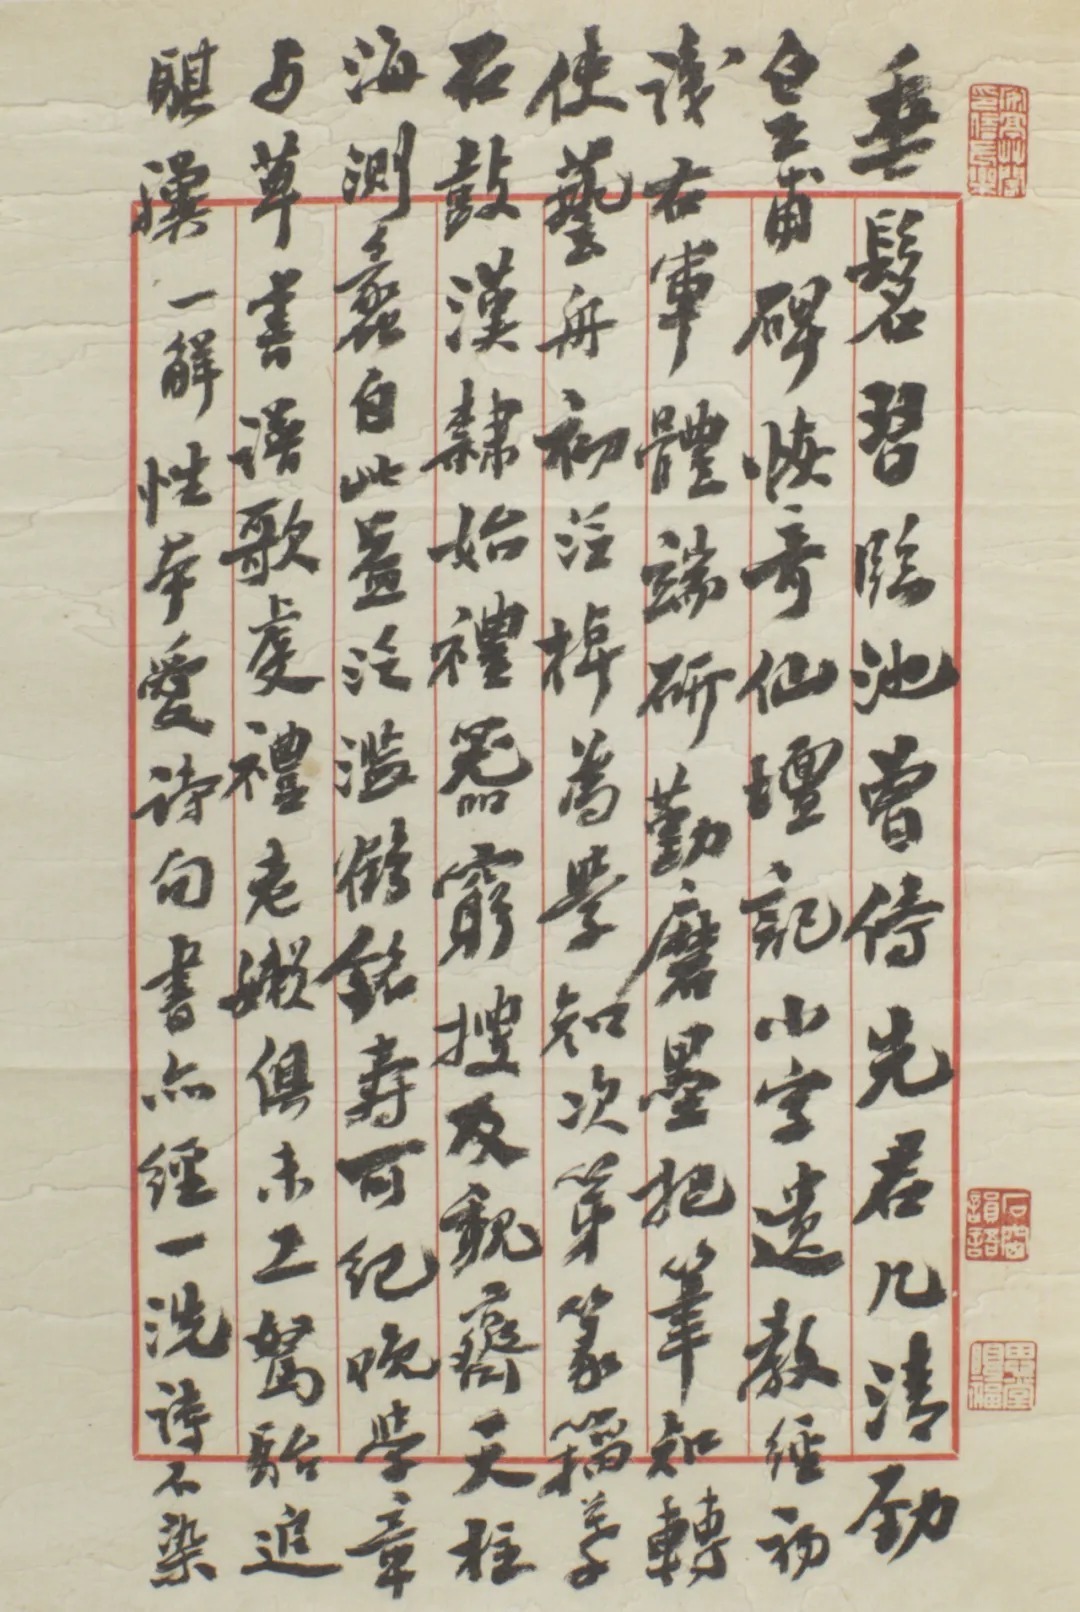 垂髫習臨池曾侍先君几清劲
皇甫碑恢奇仙壇記小字遺教經初
識右軍體端研勤磨墨把筆知轉
使藝舟初泛棹為學知次第篆籀學
石鼓漢隸始禮器窮搜及魏齊天柱
海測蠡自此益泛濫鶴銘壽可紀晚學章
与草書譜歌虔禮老嬾俱未工駑駘追
騏驥一解性本愛詩句書亦經一洗詩不染